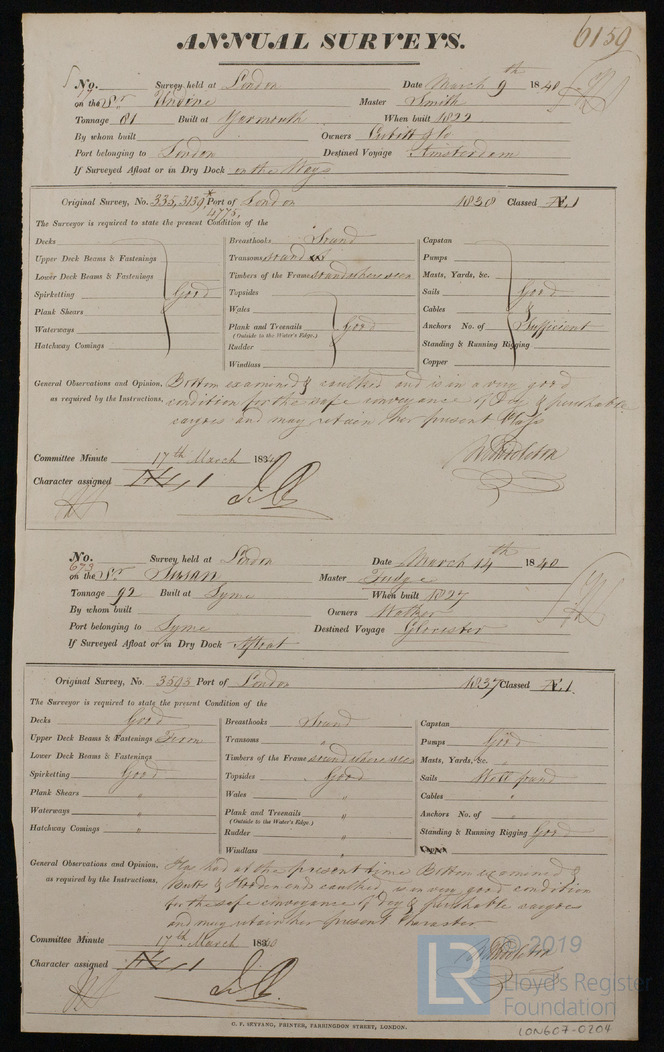 6159
ANNUAL SURVEYS.
No. Survey held at London Date March 9th 1840
on the Sr Undine Master Smith
Tonnage 81 Built at Yarmouth When built 1822
By whom built Owners Cobitt & Co
Port belonging to London Destined Voyage Amsterdam
If Surveyed Afloat or in Dry Dock on the Ways
Original Survey, No. 335, 3139, * Port of London 1838 Classed Æ1
4775,
The Surveyor is required to state the present Condition of the
Decks Breasthooks Sound Capstan
Upper Deck Beams & Fastenings Transoms Sound Pumps
Lower Deck Beams & Fastenings Timbers of the Frame sound where seen Masts, Yards, &c.
Spirketting Good Topsides Sails Good
Plank Shears Wales Cables &
Waterways Plank and Treenails Good Anchors No. of Sufficient
(Outside to the Water's Edge.)
Hatchway Comings Rudder Standing & Running Rigging
Windlass Copper
General Observations and Opinion, Bottom examined & caulked and is in a very good
as required by the Instructions, condition for the safe conveyance of Dry & perishable
cargoes and may retain her present Class
Committee Minute 17th March 1840
Character assigned Æ 1
No. Survey held at London Date March 14th 1840
673
on the Sr Susan Master Fudge
Tonnage 92 Built at Lyme When built 1827
By whom built Owners Walker
Port belonging to Lyme Destined Voyage Glocester
If Surveyed Afloat or in Dry Dock Afloat
Original Survey, No. 3593 Port of London 1837 Classed Æ1.
The Surveyor is required to state the present Condition of the
Decks Good Breasthooks Sound Capstan
Upper Deck Beams & Fastenings Firm Transoms " Pumps Good
Lower Deck Beams & Fastenings Timbers of the Frame sound where seen Masts, Yards, &c. "
Spirketting Good Topsides Good Sails Well found
Plank Shears " Wales " Cables "
Waterways " Plank and Treenails " Anchors No. of "
(Outside to the Water's Edge.)
Hatchway Comings " Rudder " Standing & Running Rigging Good
Windlass "
General Observations and Opinion, Has had at the present time Bottom examined &
as required by the Instructions, Butts & Hooden ends caulked, is in very good condition
for the safe conveyance of Dry & perishable cargoes
and may retain her present Character
Committee Minute 17th March 1840
Character assigned Æ 1
C. F. SEYFANG, PRINTER, FARRINGDON STREET, LONDON.
LR © 2019
Lloyd's Register
Foundation
LON607-0204